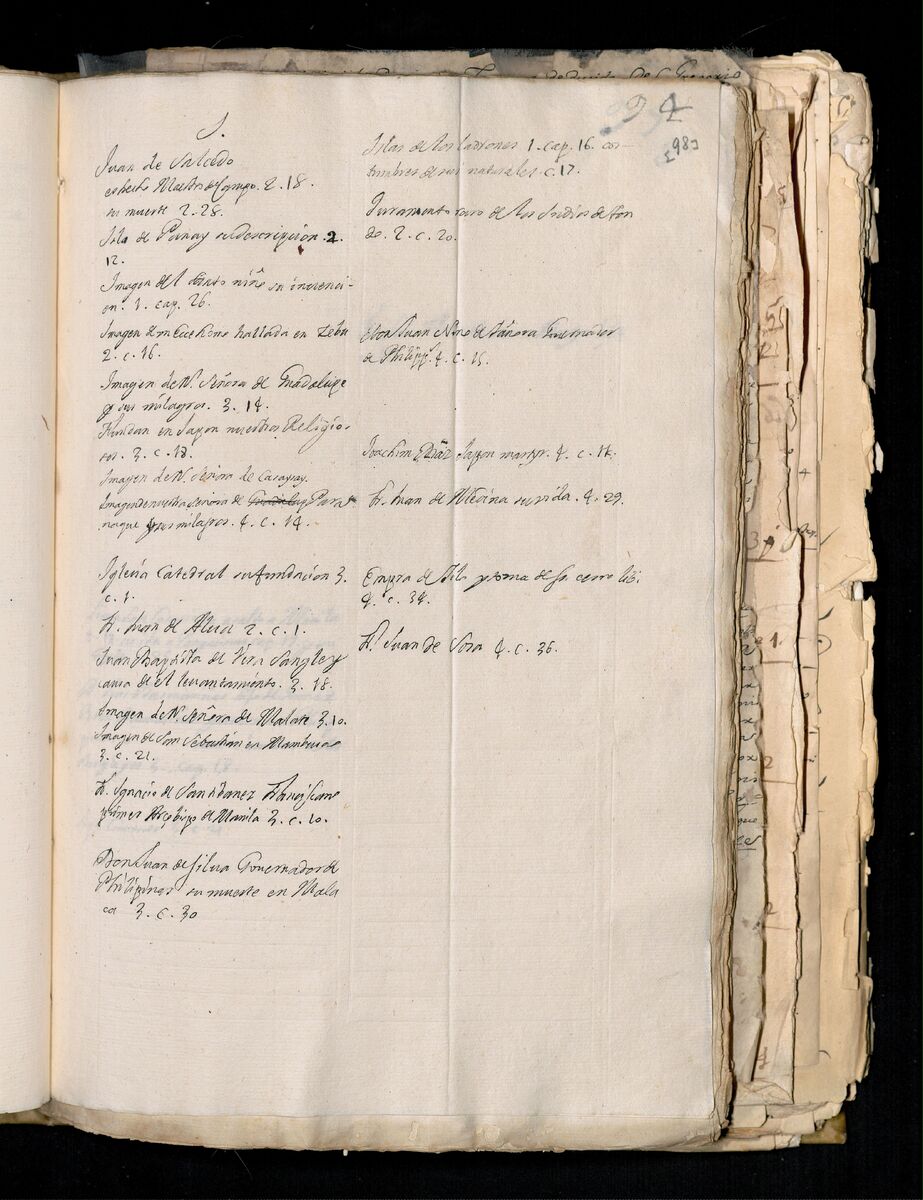 94
983
J.
Juan de Salcedo
es hecho Maestre de Campo. 2. 18.
su muerte 2. 28.
Isla de Panay su descripcion. 2.
12.
Imagen del Santo niño su invenci-
on. 1. cap. 26.
Imagen de un Ecce homo hallada en Zebu
2. c. 16.
Imagen de N. Señora de Guadalupe
y sus milagros. 3. 14.
Fundan en Japon nuestros Religio-
sos. 3. c. 18.
Imagen de N. Señora de Casaysay.
Imagen de nuestra Señora de Guadalup Para
naque y sus milagros. 4. c. 14.
Iglesia Catedral su fundacion 3.
c. 1.
fr. Juan de Alua 2. c. 1.
Juan Baptista de Vera Sangley
causa de el levantamiento. 3. 18.
Imagen de N. Señora de Malate 3. 10.
Imagen de San Sebastian en
3. c. 21.
fr. Ignacio de Santibanez
primer Arçobispo de Manila 3. c. 10.
Don Juan de Silua Governador de
Philipinas su muerte en Mala
ca 3. c. 30
Islas de los ladrones 1. cap. 16. cos-
tumbres de sus naturales. c. 17.
Juramento raro de los Indios de Ton
do. 2. c. 20.
Don Juan Nino de Tabora Governador
de Philipp. 4. c. 15.
Joachim Diaz Japon martyr. 4. c. 11.
fr. Juan de Medina su vida. 4. 29.
de Jolo y toma de su cerro
4. c. 34.
fr. Juan de Sosa 4. c. 36.